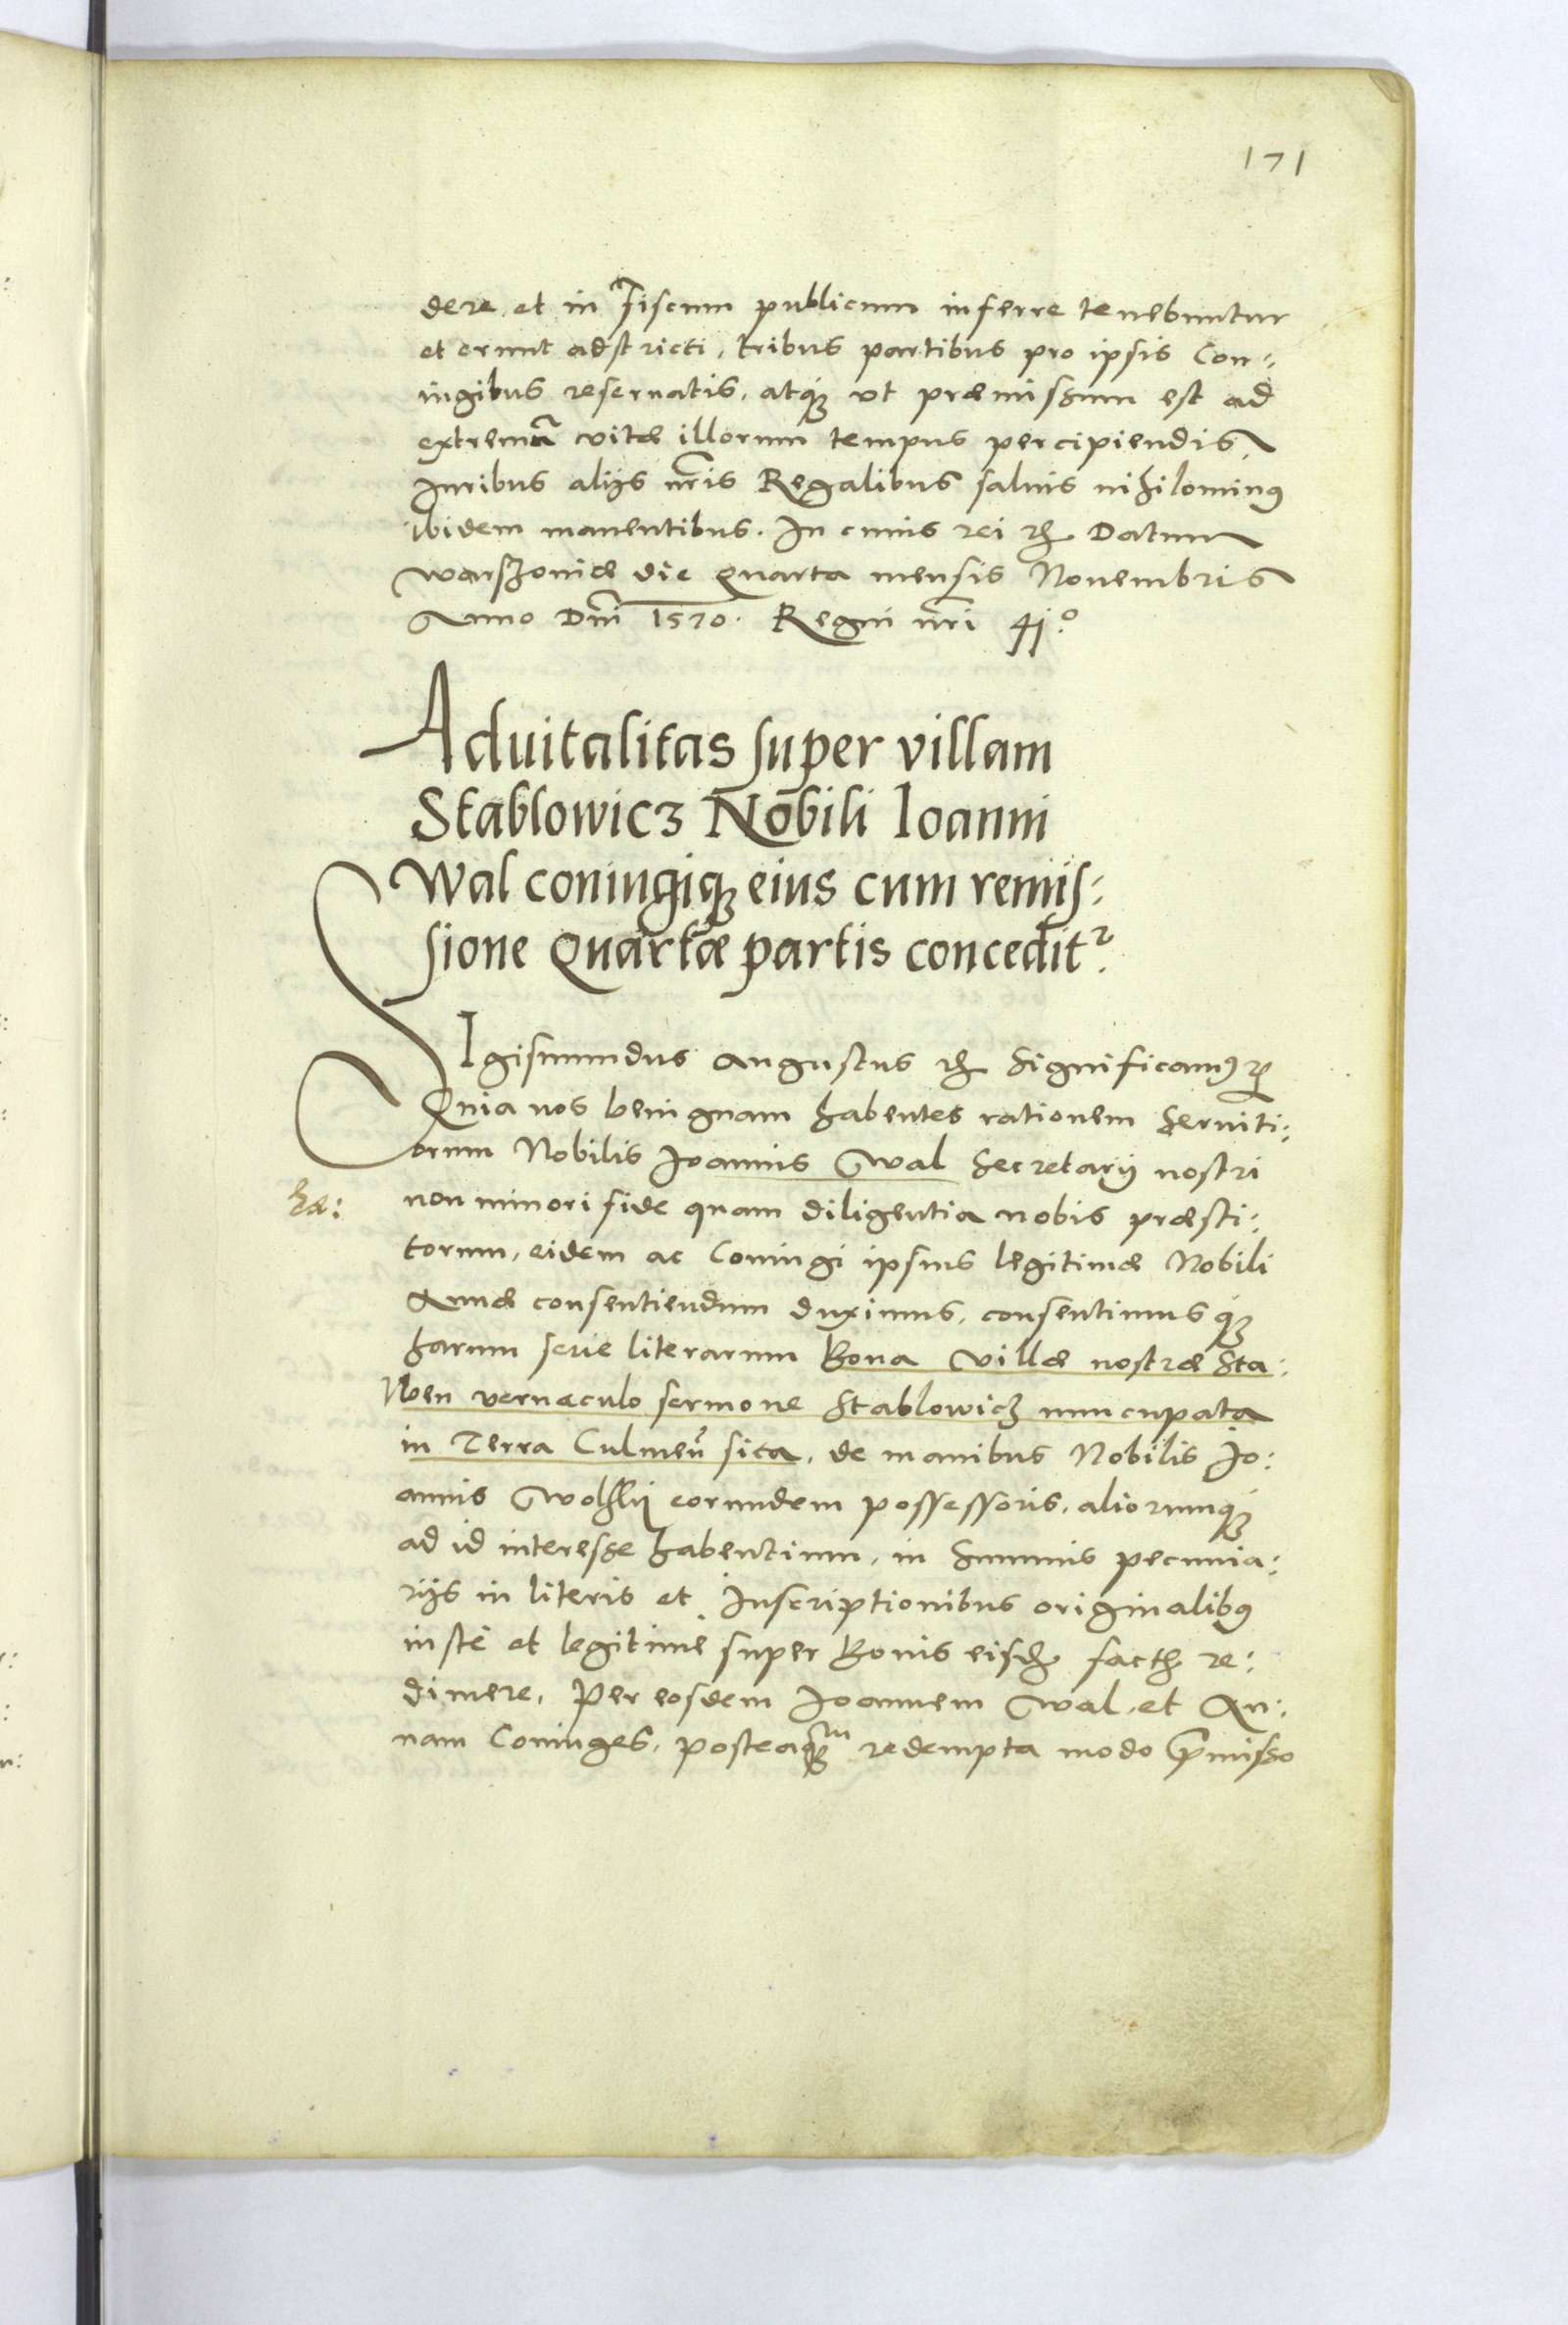 171
dere et in fiscum publicum inferre tenebuntur
et erunt adstricti, tribus partibus pro ipsis Con:
iugibus reseruatis, atq́ꝫ vt præmissum est ad
extremū vitæ illorum tempus percipiendis,
Iuribus alijs nr̃is Regalibus saluis nihilominꝰ
ibidem manentibus. In cuius rei ꝛc̃ Datum
Warszouiæ die Quarta mensis Nouembris
Anno Dñi 1570. Regni nr̃i 41.º
Aduitalitas super villam
Stablowicz Nobili Ioanni
Wal coniugiqꝫ eius cum remis:
sione Quartæ partis concedit᷑.
SIgismundus Augustus ꝛc̃ Significamꝰ ꝛc̃
Quia nos benignam habentes rationem Seruiti:
orum Nobilis Joannis Wal Secretarij nostri
non minori fide quam diligentia nobis præsti:
torum, eidem ac Coniugi ipsius legitimæ Nobili
Annæ consentiendum duximus, consentimus q́ꝫ
harum serie literarum Bona villæ nostræ Sta:
blen vernaculo sermone Stablowicz nuncupata
in Terra Culmeñ sita, de manibus Nobilis Jo:
annis Wolffij eorundem possessoris, aliorumq́ꝫ
ad id interesse habentium, in Summis pecunia:
rijs in literis et Inscriptionibus originalibꝰ
iustè et legitimè super Bonis eisdꝫ factꝫ re:
dimere, Per eosdem Joannem Wal, et An:
nam Coniuges, posteaqꝫm redempta modo p̃misso